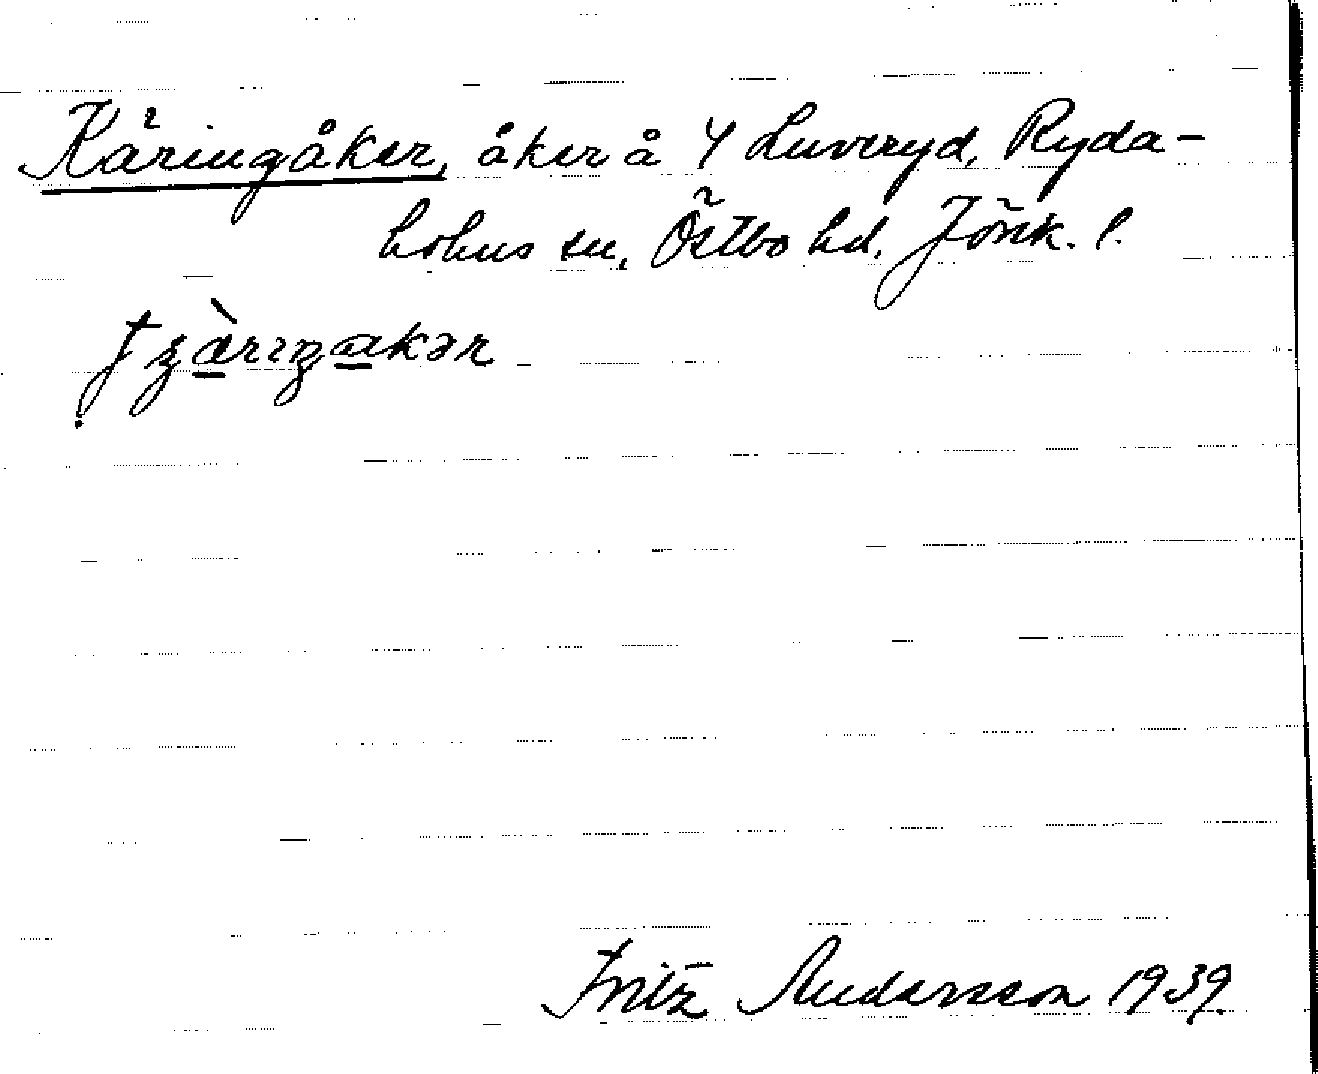 Käringåker, åker å Y Luvery̆d, Ryda-
holms sn, Östbo hd, Jönk. l.
Fritz Andersson 1939.